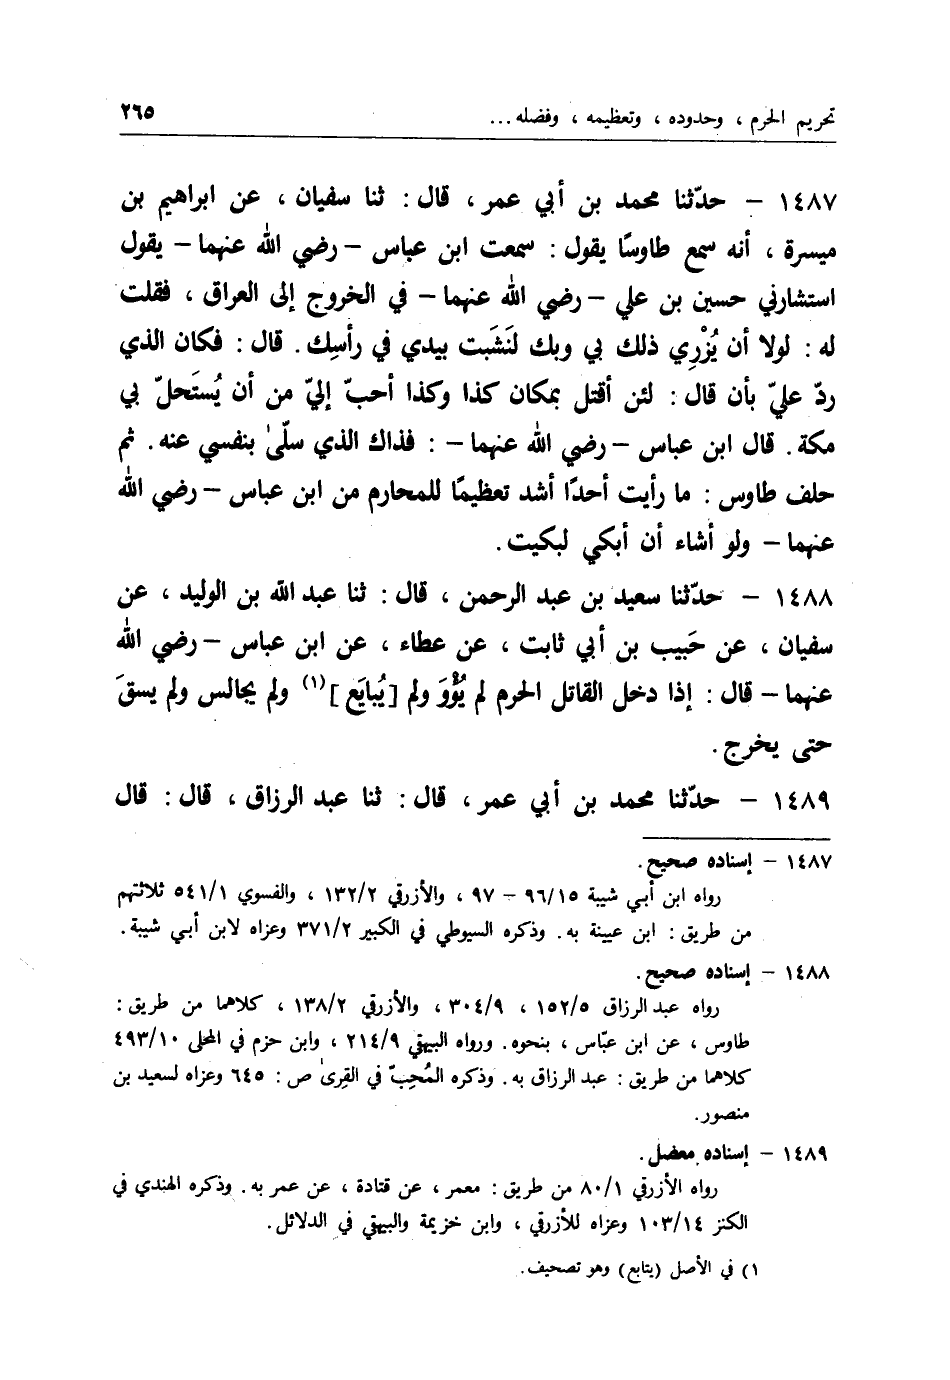 تحريم الحرم ، وحدوده ، وتعظيمه ، وفضله ...
٢٦٥
١٤٨٧ - حدّثنا محمد بن أبي عمر ، قال : ثنا سفيان ، عن ابراهيم بن
ميسرة ، أنه سمع طاوسًا يقول : سمعت ابن عباس - رضي الله عنهما - يقول
استشارني حسين بن علي - رضي الله عنهما - في الخروج إلى العراق ، فقلت
له : لولا أن يُزْرِي ذلك بي وبك لنَشَبت بيدي في رأسِك . قال : فكان الذي
ردّ عليّ بأن قال : لئن أقتل بمكان كذا وكذا أحبّ إليّ من أن يُستَحلّ بي
مكة . قال ابن عباس - رضي الله عنهما - : فذاك الذي سلّىٰ بنفسي عنه . ثم
حلف طاوس : ما رأيت أحدًا أشد تعظيمًا للمحارم من ابن عباس - رضي الله
عنهما - ولو أشاء أن أبكي لبكيت .
١٤٨٨ - حدّثنا سعيد بن عبد الرحمن ، قال : ثنا عبد الله بن الوليد ، عن
سفيان ، عن حَبيب بن أبي ثابت ، عن عطاء ، عن ابن عباس - رضي الله
عنهما - قال : إذا دخل القاتل الحرم لم يُؤْوَ ولم [يُبايَع] (١) ولم يجالس ولم يسقَ
حتى يخرج .
١٤٨٩ - حدّثنا محمد بن أبي عمر ، قال : ثنا عبد الرزاق ، قال : قال
١٤٨٧ - إسناده صحيح .
رواه ابن أبي شيبة ٩٦/١٥ - ٩٧ ، والأزرقي ١٣٢/٢ ، والفسوي ٥٤١/١ ثلاثتهم
من طريق : ابن عيينة به . وذكره السيوطي في الكبير ٣٧١/٢ وعزاه لابن أبي شيبة .
١٤٨٨ - إسناده صحيح .
رواه عبد الرزاق ١٥٢/٥ ، ٣٠٤/٩ ، والأزرقي ١٣٨/٢ ، كلاهما من طريق :
طاوس ، عن ابن عبّاس ، بنحوه . ورواه البيهقي ٢١٤/٩ ، وابن حزم في المحلى ٤٩٣/١٠
كلاهما من طريق : عبد الرزاق به . وذكره المُحِبّ في القِرىٰ ص : ٦٤٥ وعزاه لسعيد بن
منصور .
١٤٨٩ - إسناده معضل .
رواه الأزرقي ٨٠/١ من طريق : معمر ، عن قتادة ، عن عمر به . وذكره الهندي في
الكنز ١٠٣/١٤ وعزاه للأزرقي ، وابن خزيمة والبيهقي في الدلائل .
١) في الأصل (يتابع) وهو تصحيف .